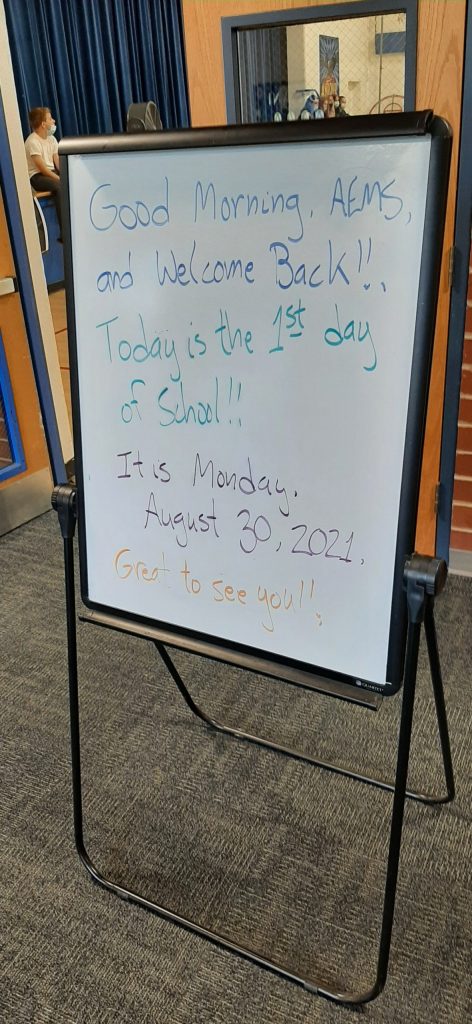 Good Morning, AEMS,
and Welcome Back!!
Today is the 1st day
of School!!
It is Monday,
August 30, 2021.
Great to see you!!
QUARTET